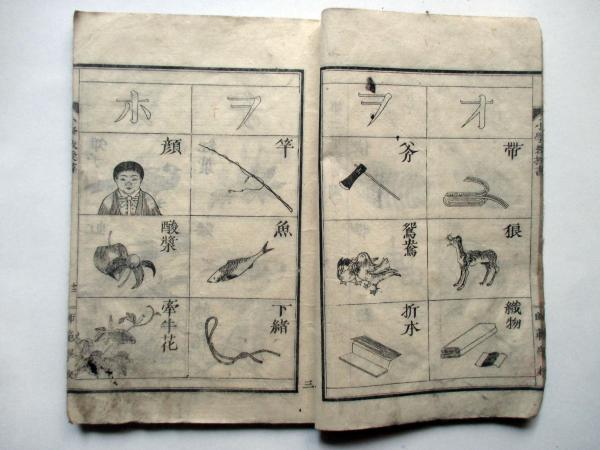 オ
帶
狼
織物
ヲ
斧
鴛鴦
折本
三
ヲ
竿
魚
下緒
ホ
顔
酸漿
牽牛花